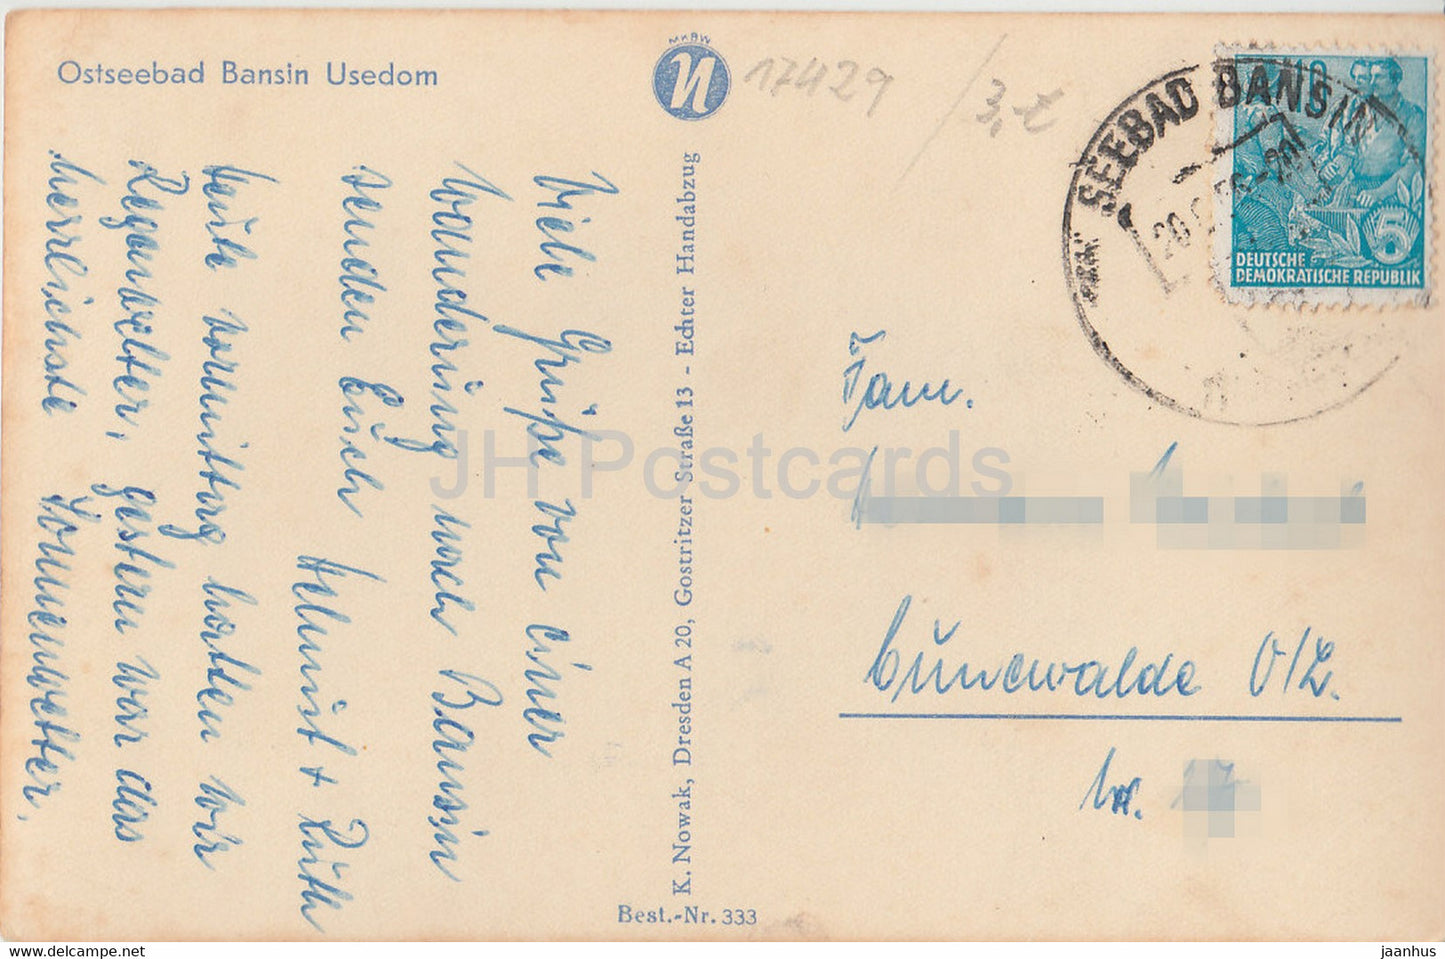 Ostseebad Bansin Usedom
MKBW
17429
3,-
SEEBAD BANSIN
DEUTSCHE
DEMOKRATISCHE REPUBLIK
5
Viele Grüße von einer
Wanderung nach Bansin
senden Euch
Helmut + Ruth
Heute vormittag hatten wir
Regenwetter, gestern war das
herrlichste Sonnenwetter.
K. Nowak, Dresden A 20, Gostritzer Straße 13 - Echter Handabzug
Best.-Nr. 333
Fam.
Cunewalde O/L.
JH Postcards
https://www.delcampe.net
jaanhus